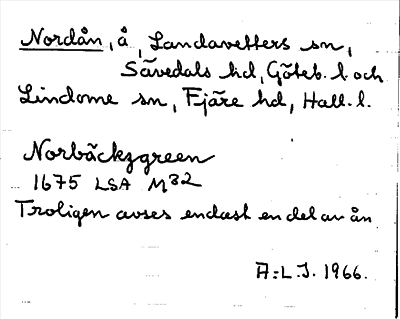 Nordån, å, Landavetters sn,
Sävedals hd, Göteb. l. och
Lindome sn, Fjäre hd, Hall. l.
Norbäckzgreen
1675 LSA M32
Troligen avses endast en del av ån
A:L.J. 1966.